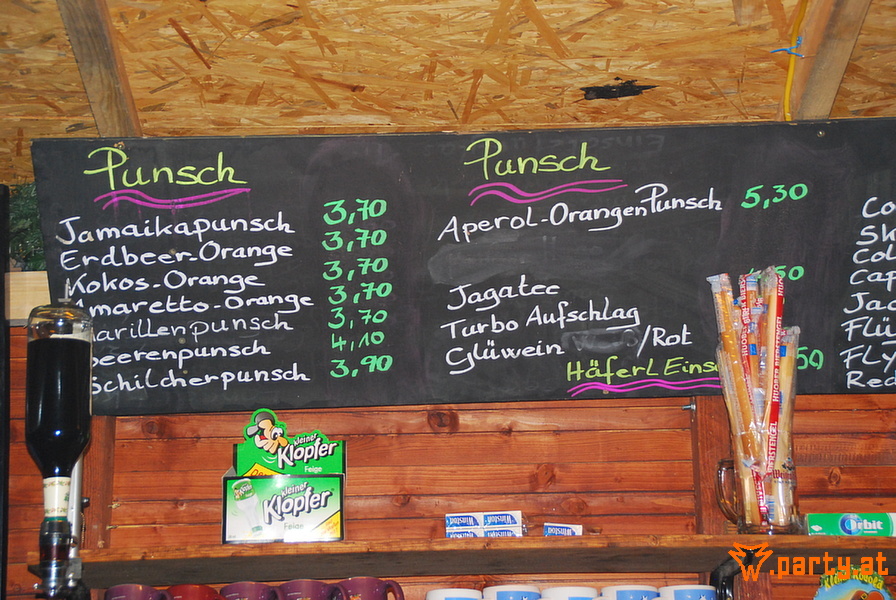 Punsch
Jamaikapunsch 3,70
Erdbeer-Orange 3,70
Kokos-Orange 3,70
Amaretto-Orange 3,70
arillenpunsch 3,70
beerenpunsch 4,10
Schilcherpunsch 3,90
Punsch
Aperol-Orangen Punsch 5,30
Jagatee 50
Turbo Aufschlag
Glüwein /Rot 50
Häferl Eins
Co
Sk
Col
Cap
Ja
Flü
FLy
Red
kleiner
Klopfer
Feige
kleiner
Klopfer
Feige
Winston Winston
Winston Winston
Winston
HUOBER
BIERSTENGEL
Orbit
www.party.at